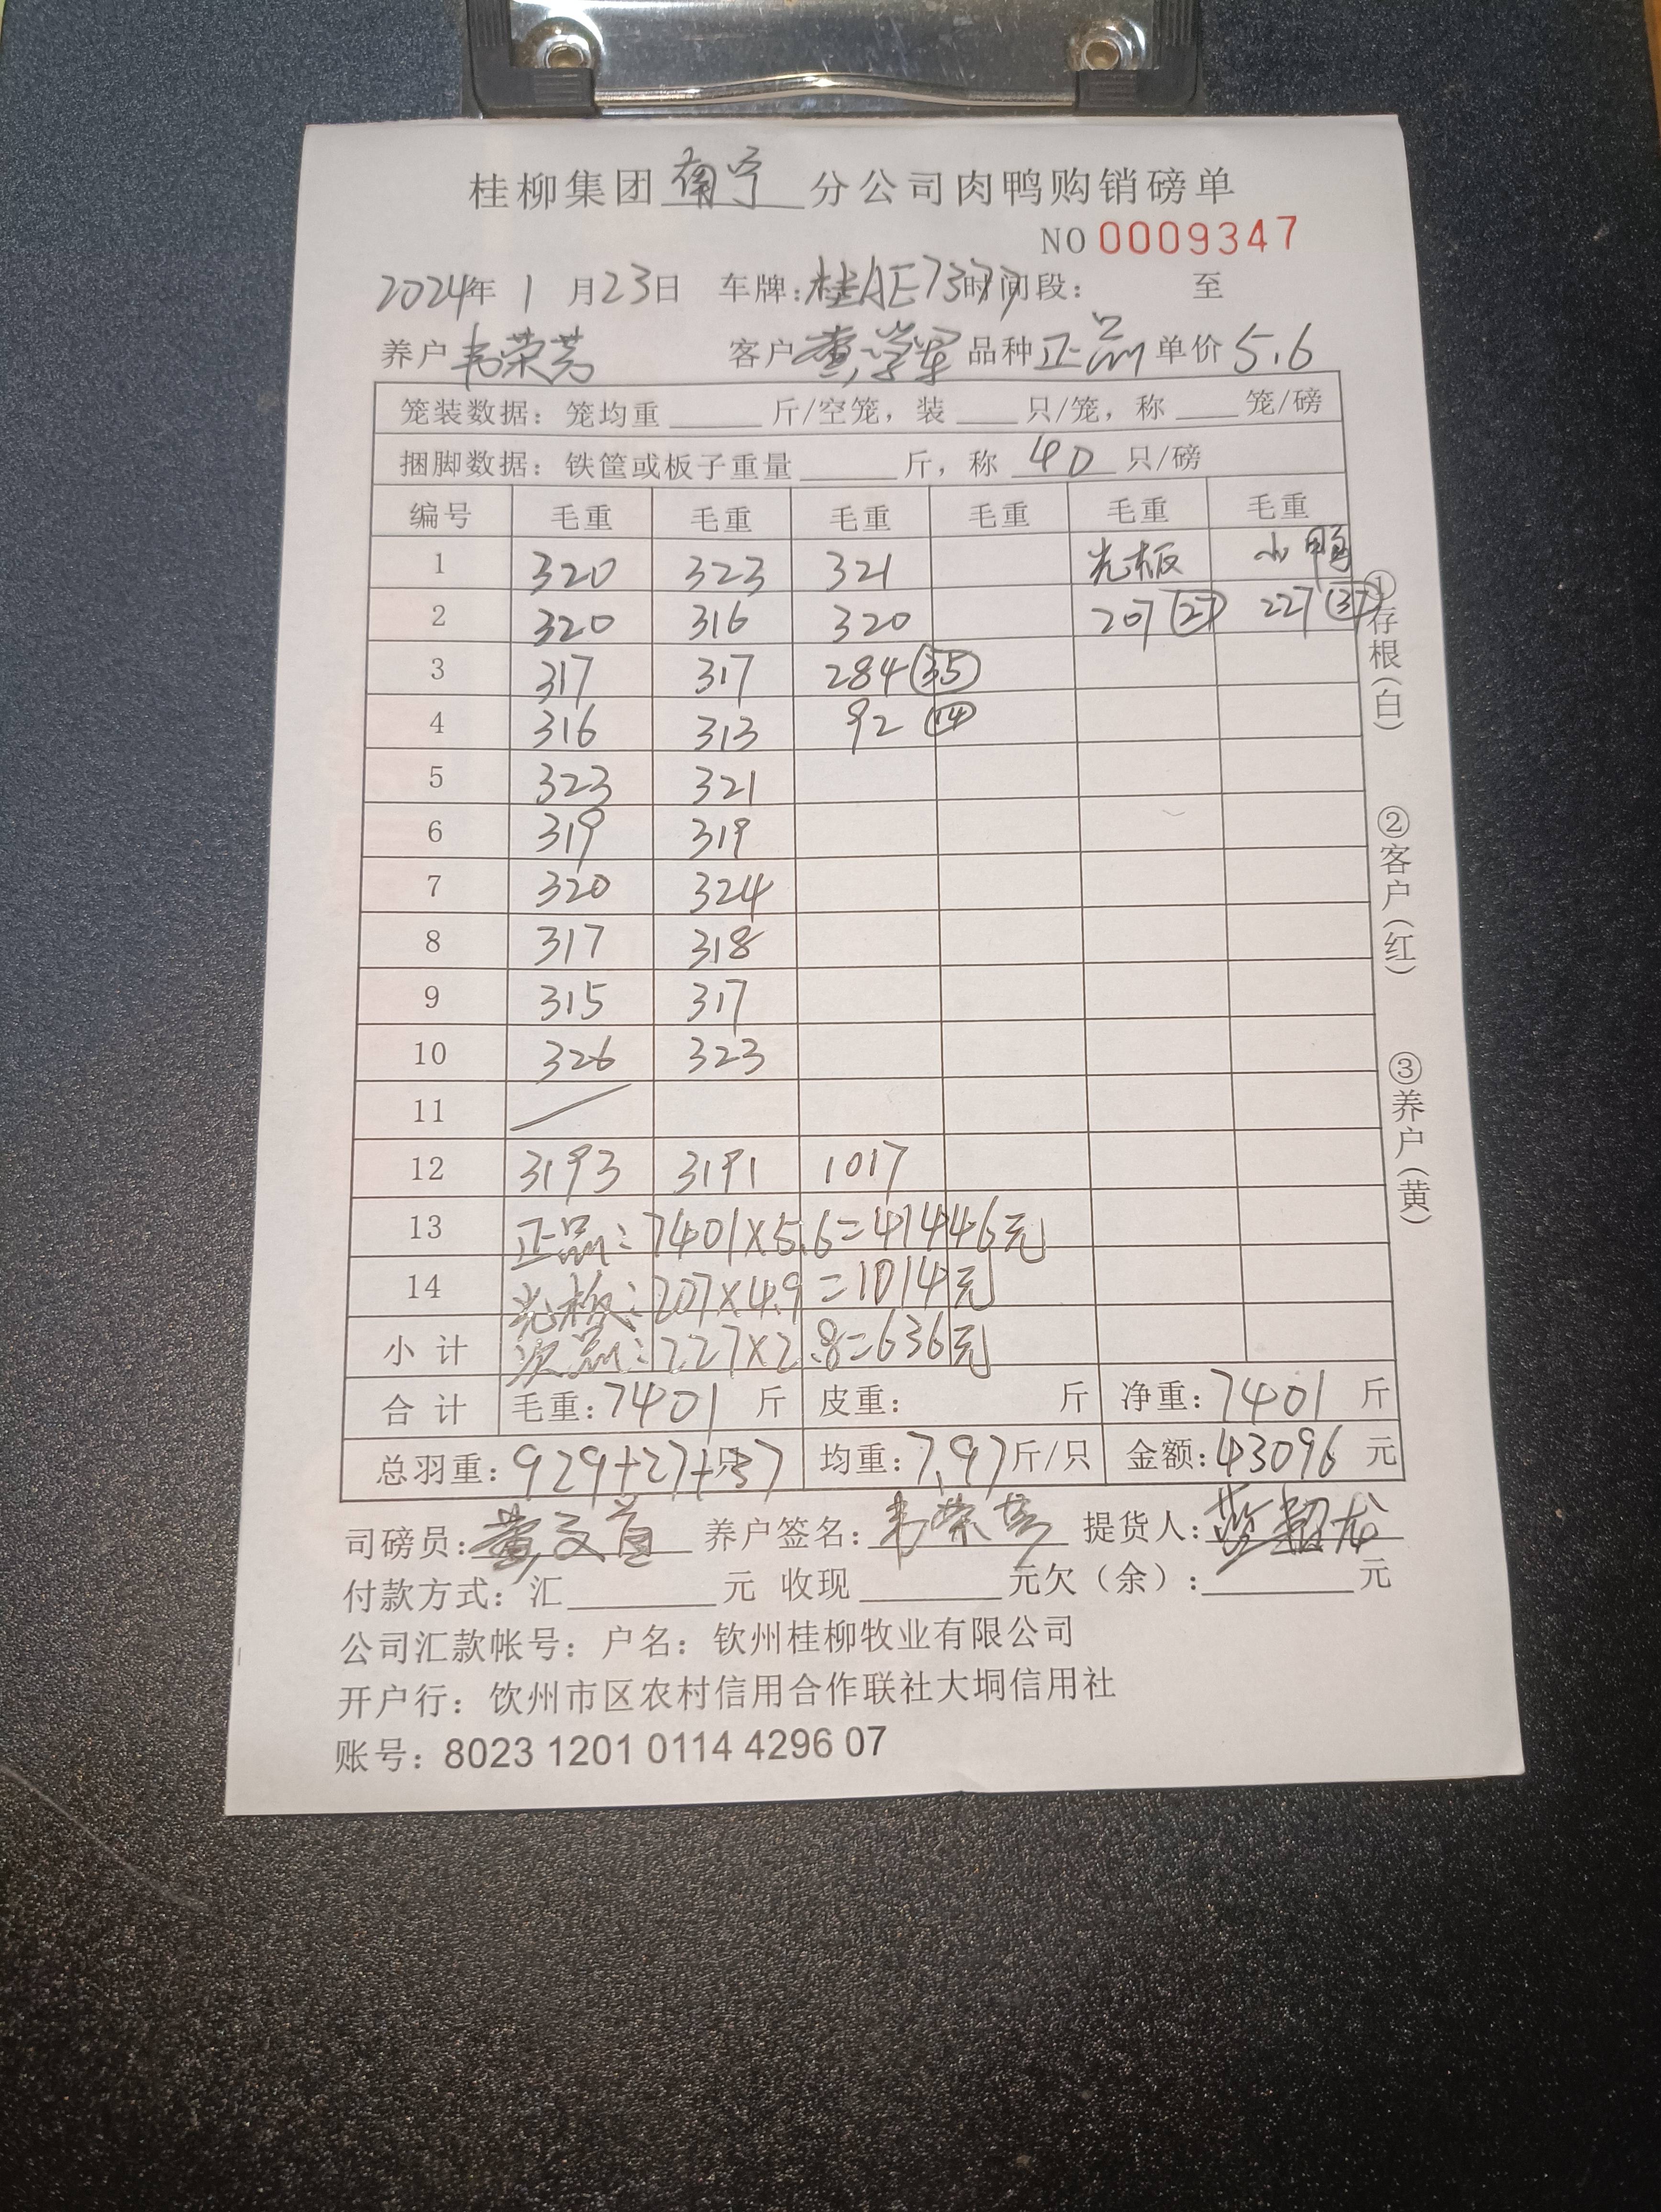 桂柳集团南宁分公司肉鸭购销磅单
NO 0009347
2024年 1 月23日 车牌:桂AE7377时间段: 至
养户 韦荣芳 客户 黄学军 品种 正品 单价 5.6
笼装数据:笼均重 斤/空笼,装 只/笼,称 笼/磅
捆脚数据:铁筐或板子重量 斤,称 40 只/磅
编号 毛重 毛重 毛重 毛重 毛重 毛重
1 320 323 321 光板 小鸭
2 320 316 320 207 (27) 227 (37)
3 317 317 284 (35)
4 316 313 92 (14)
5 323 321
6 319 319
7 320 324
8 317 318
9 315 317
10 326 323
11
12 3193 3191 1017
13 正品:7401×5.6=41446元
14 光板:207×4.9=1014元
小计 次品:227×2.8=636元
合计 毛重:7401 斤 皮重: 斤 净重:7401 斤
总羽重:929+27+37只 均重:7.97斤/只 金额:43096 元
司磅员: 养户签名:韦荣芳 提货人:
付款方式:汇 元 收现 元欠(余): 元
公司汇款帐号:户名:钦州桂柳牧业有限公司
开户行:钦州市区农村信用合作联社大垌信用社
账号:8023 1201 0114 4296 07
①存根(白)
②客户(红)
③养户(黄)